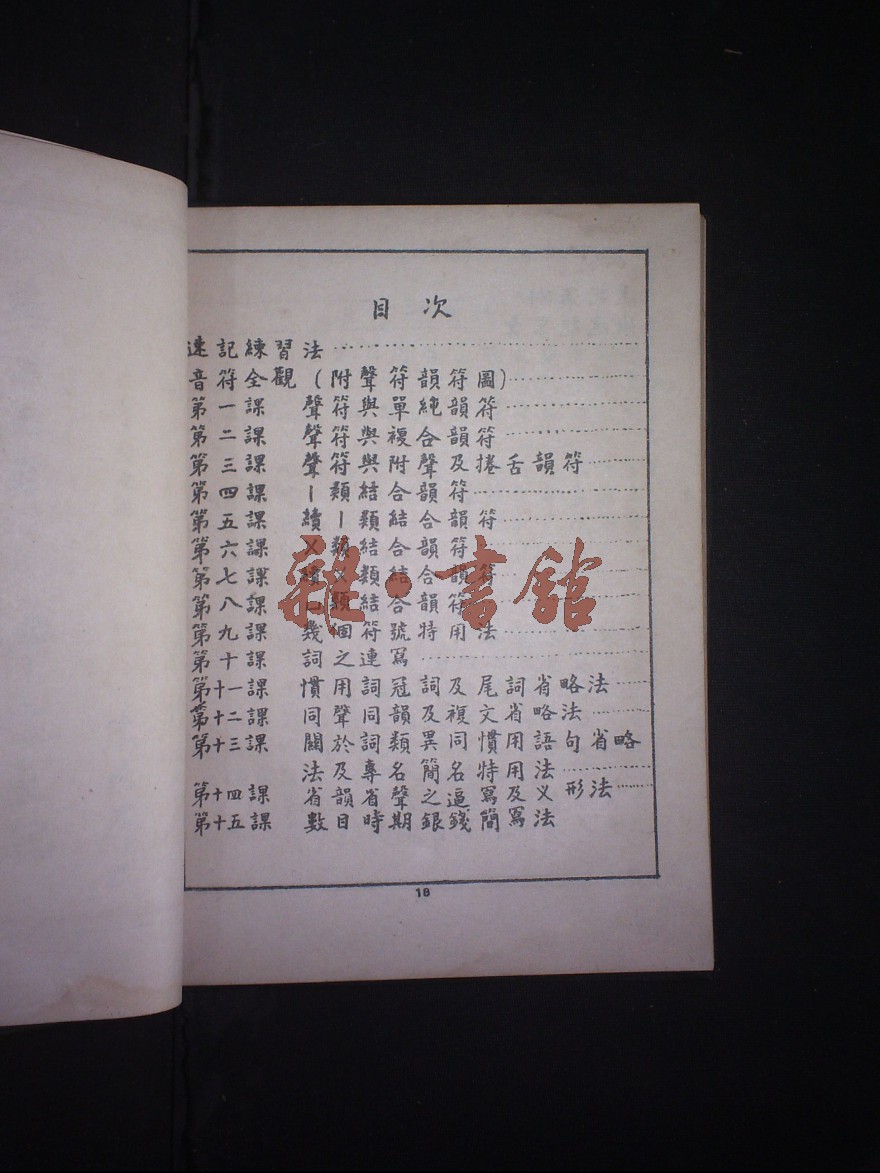 目次
速記練習法
音符全觀(附聲符韻符圖)
第一課 聲符與單純韻符
第二課 聲符與複合韻符
第三課 聲符與附聲及捲舌韻符
第四課 ㄧ類結合韻符
第五課 續ㄧ類結合韻符
第六課 ㄨ類結合韻符
第七課 續ㄨ類結合韻符
第八課 類結合韻符
第九課 幾個符號特用法
第十課 詞之連寫
第十一課 慣用詞冠詞及尾詞省略法
第十二課 同聲同韻及複文省略法
第十三課 關於詞類異同慣用語句省略
法及專名簡名特用法
第十四課 省韻省聲之逼寫及义形法
第十五課 數目時期銀錢簡寫法
18
雜·書館